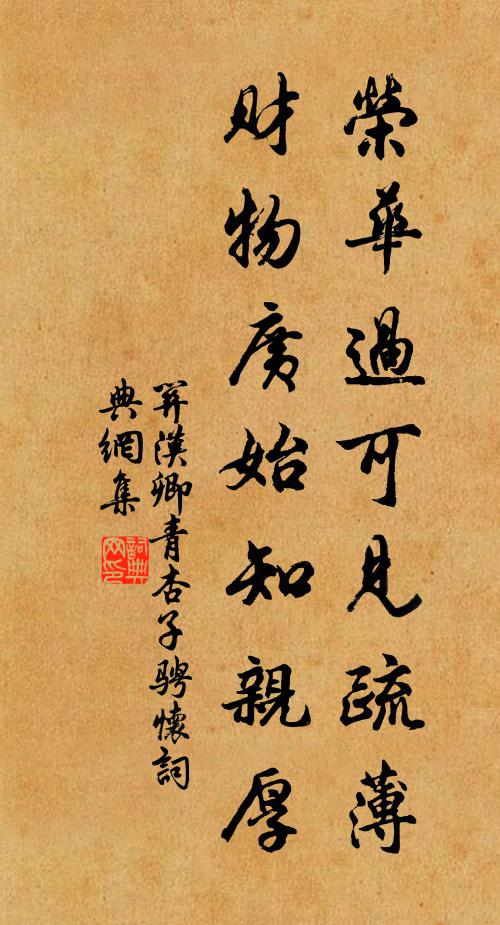 榮華過可見疏薄
财物廣始知親厚
関漢卿青杏子騁懷詞
典網集
詞典网印